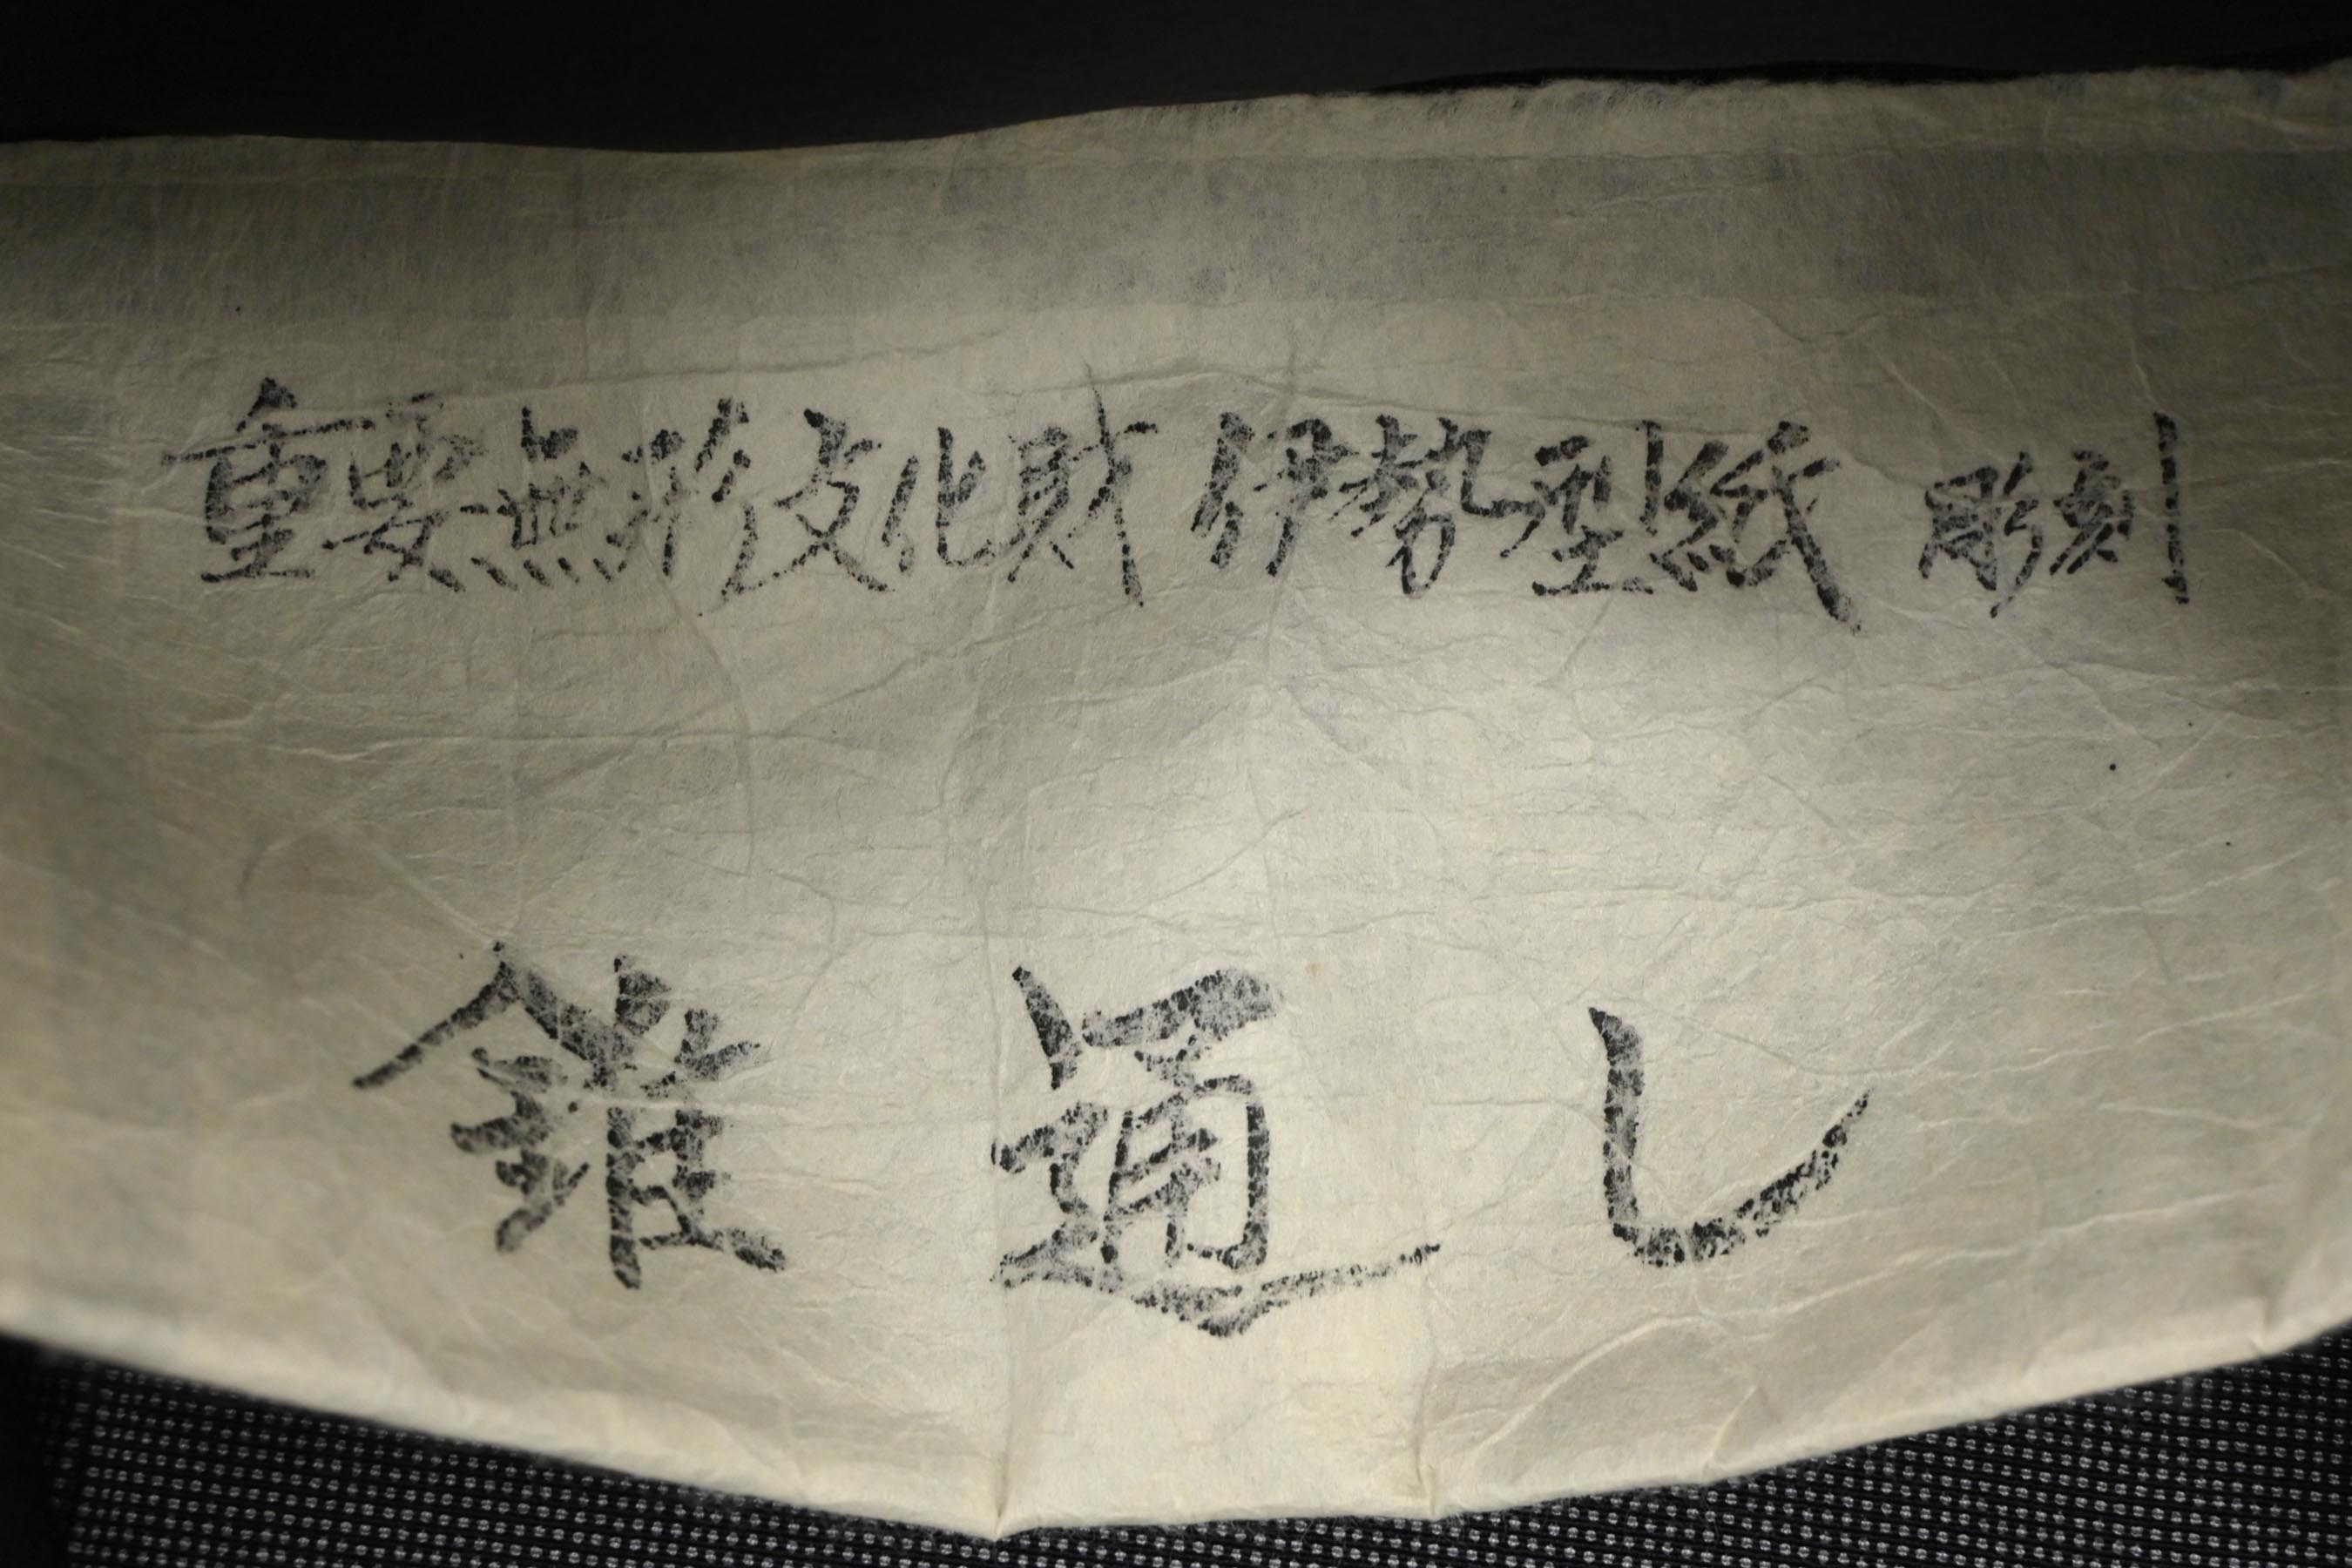 重要無形文化財 伊勢型紙 彫刻
錐通し